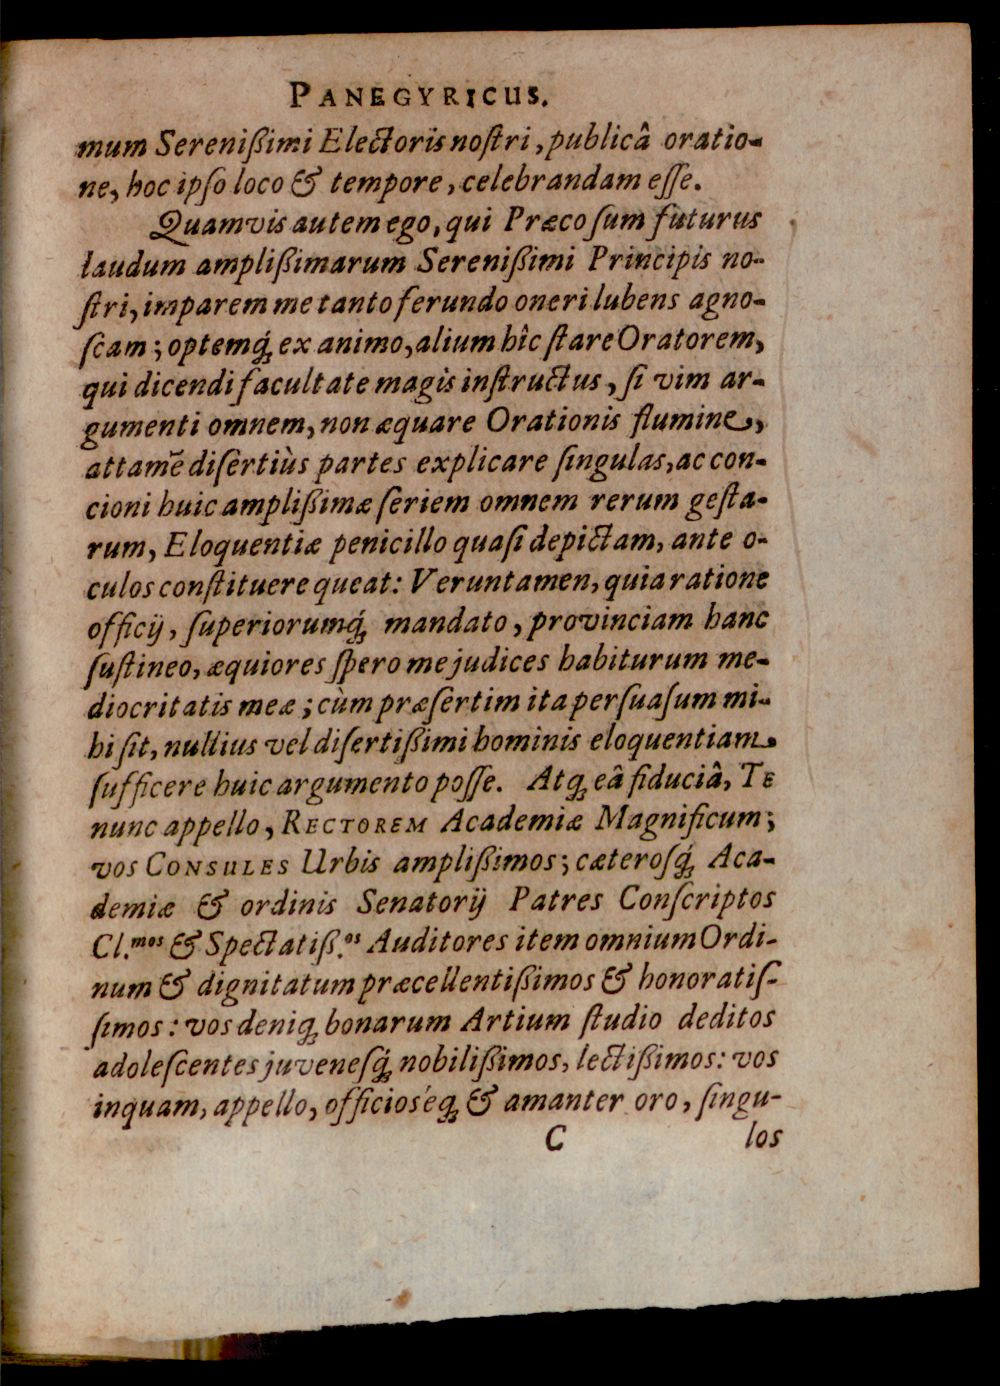 PANEGYRICUS.
mum Serenißimi Electoris noſtri, publicâ oratio-
ne, hoc ipſo loco & tempore, celebrandam eſſe.
Quamvis autem ego, qui Præco ſum futurus
laudum amplißimarum Sereniſſimi Principis no-
ſtri, imparem me tanto ferundo oneri lubens agno-
ſcam; optemq́; ex animo, alium hîc ſtare Oratorem,
qui dicendi facultate magis inſtructus, ſi vim ar-
gumenti omnem, non æquare Orationis flumine,
attamē diſertiùs partes explicare ſingulas, ac con-
cioni huic amplißimæ ſeriem omnem rerum geſta-
rum, Eloquentiæ penicillo quaſi depictam, ante o-
culos conſtituere queat: Veruntamen, quia ratione
officij, ſuperiorumq́; mandato, provinciam hanc
ſuſtineo, æquiores ſpero me judices habiturum me-
diocritatis meæ; cùm præſertim ita perſuaſum mi-
hi ſit, nullius vel diſertißimi hominis eloquentiam
ſufficere huic argumento poſſe. Atq; eâ fiduciâ, TE
nunc appello, RECTOREM Academiæ Magnificum;
vos CONSULES Urbis amplißimos; cæteroſq́; Aca-
demiæ & ordinis Senatorij Patres Conſcriptos
Cl.mos & Spectatiß.os Auditores item omnium Ordi-
num & dignitatum præcellentißimos & honoratiſ-
ſimos: vos deniq; bonarum Artium ſtudio deditos
adoleſcentes juveneſq́; nobilißimos, lectißimos: vos
inquam, appello, officioséq; & amanter oro, ſingu-
C los